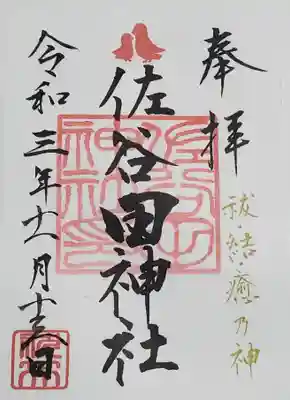 奉拝
祓・結・癒乃神
佐谷田神社
令和三年十一月十六日